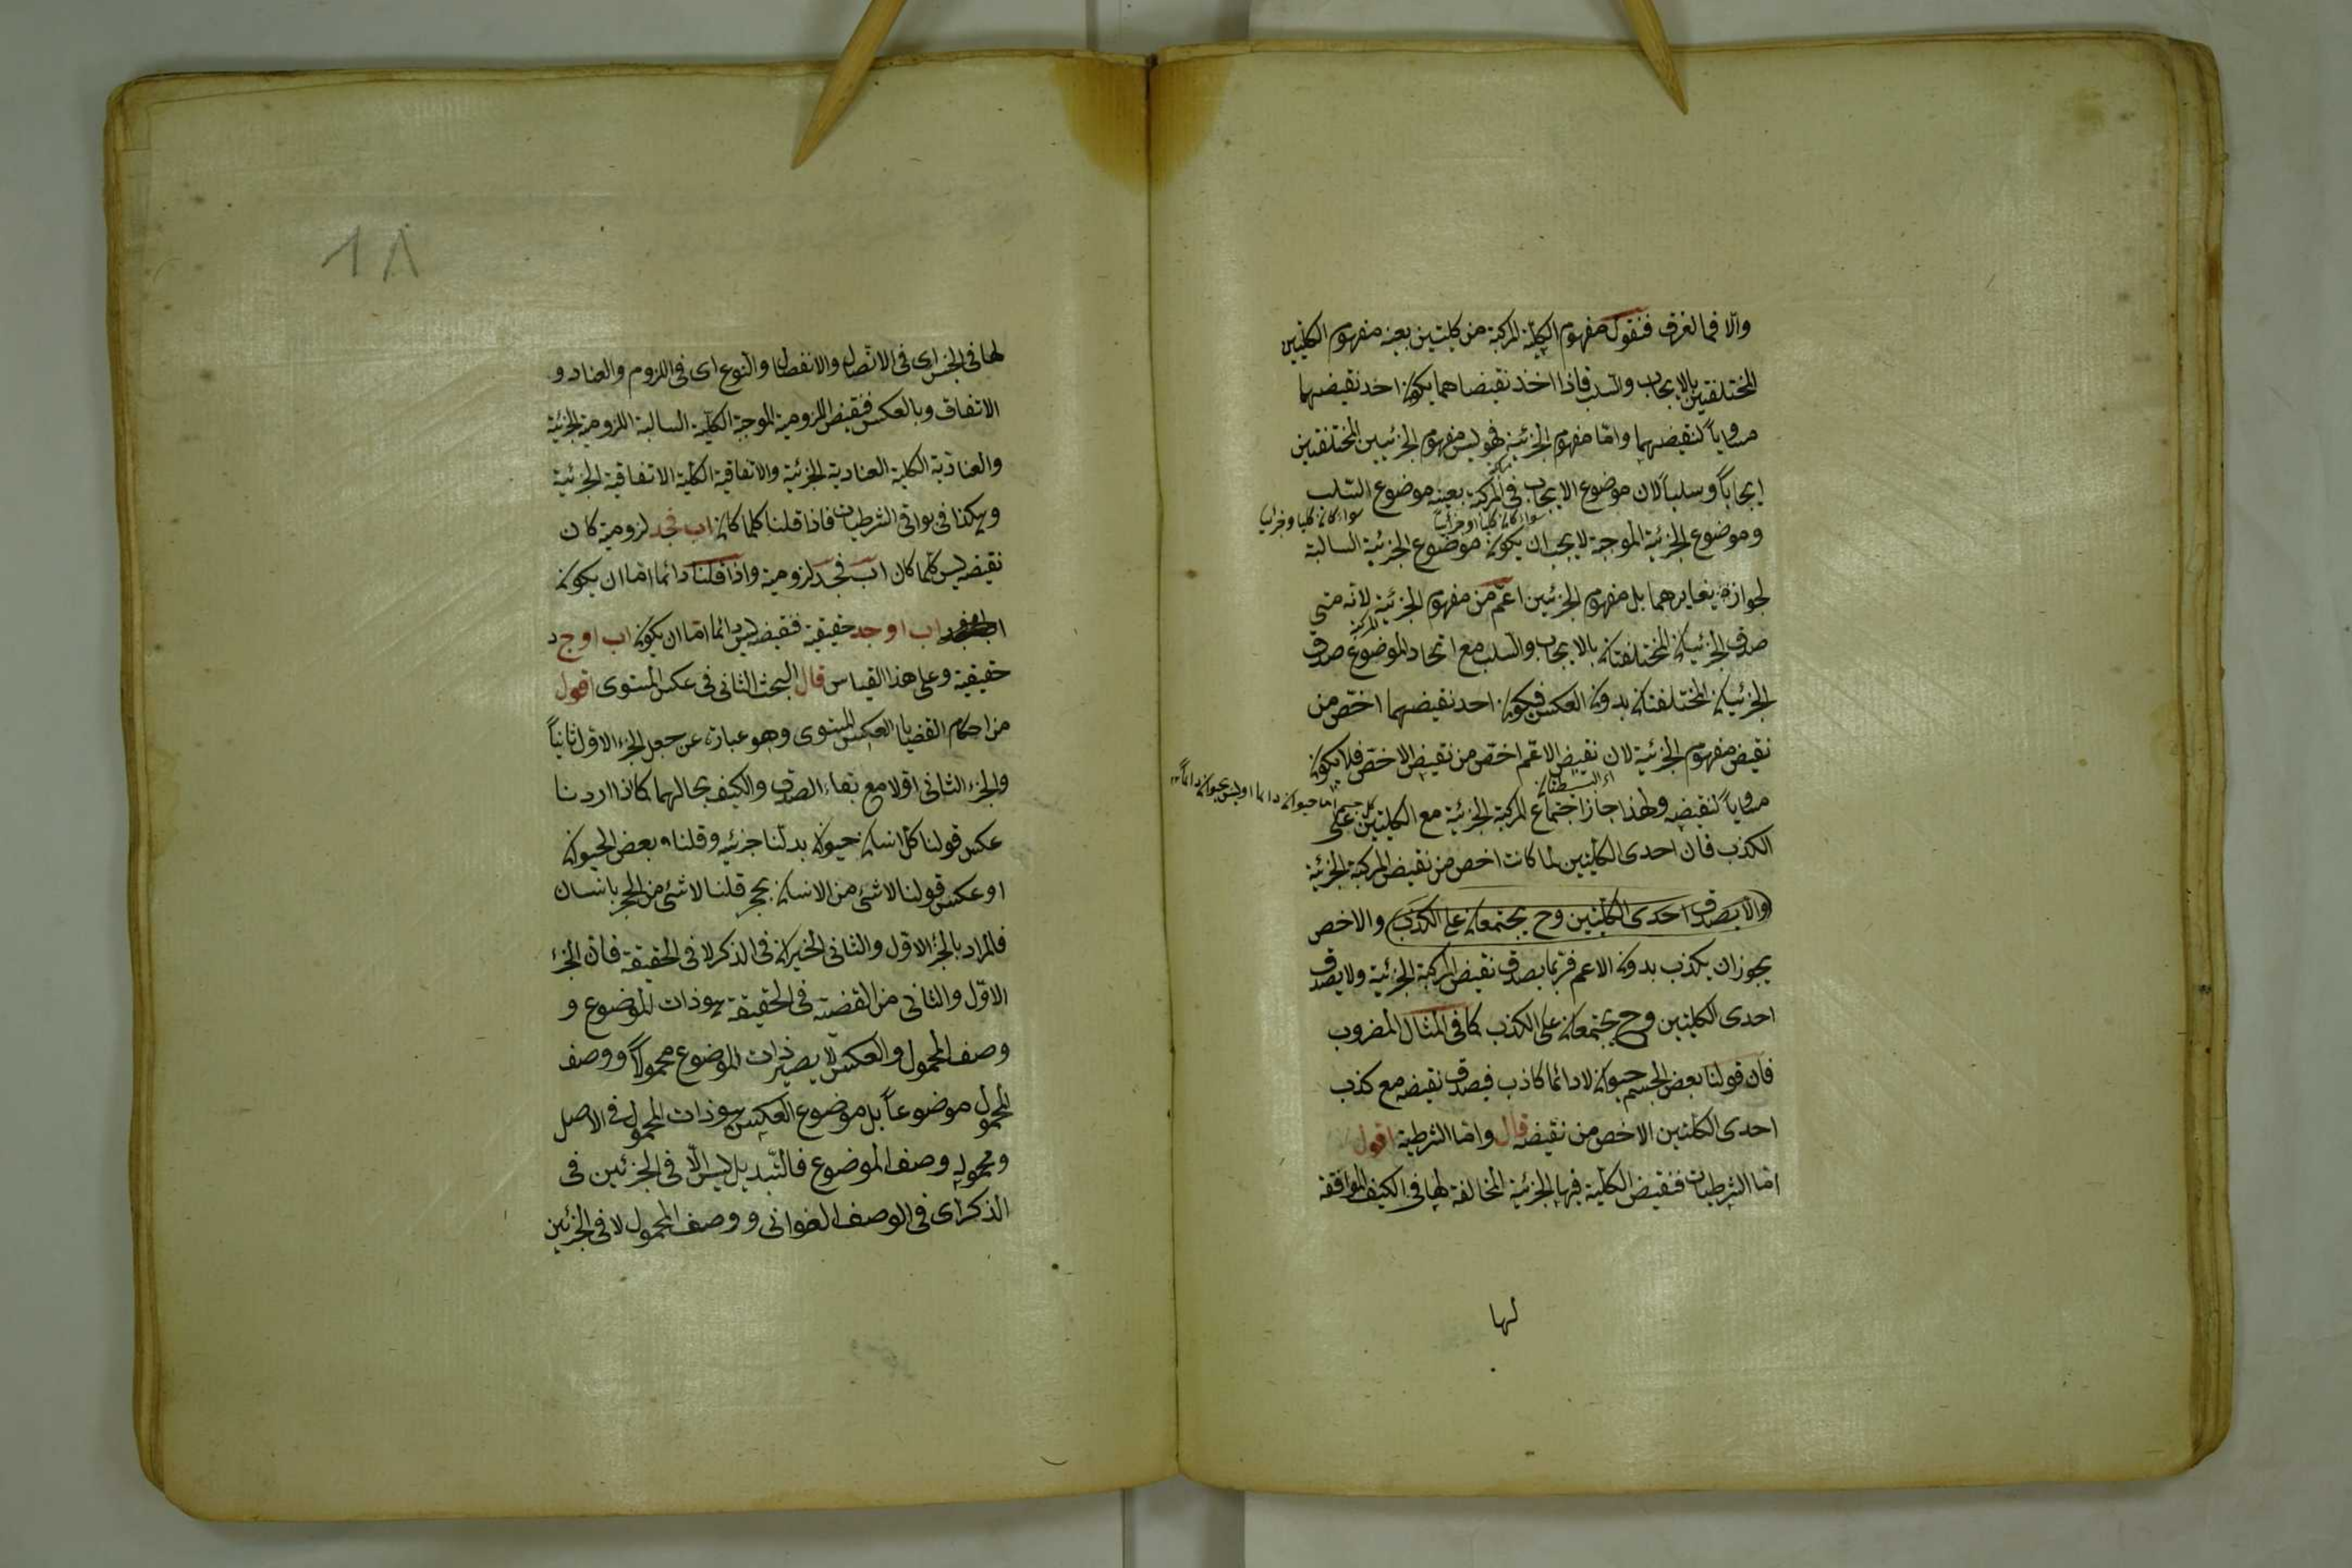 والا فما الفرق فنقول مفهوم الكلية المركبة من كليتين بعينه مفهوم الكليتين
المختلفتين بالايجاب والسلب فاذا اخذ نقيضاهما يكون احد نقيضيهما
مساوياً لنقيضهما واما مفهوم الجزئية فهو ليس مفهوم الجزئيين المختلفتين
ايجاباً وسلباً لان موضوع الايجاب في المركبة بعينه موضوع السلب
سواء كان كليا او جزئيا
سواء كان كليا وجزئيا
وموضوع الجزئية الموجبة لا يجب ان يكون موضوع الجزئية السالبة
لجواز تغايرهما بل مفهوم الجزئين اعم من مفهوم الجزئية لانه متى
المركبة
صدق الجزئيتان المختلفتان بالايجاب والسلب مع اتحاد الموضوع صدق
الجزئيتان المختلفتان بدون العكس فيكون احد نقيضيهما اخص من
نقيض مفهوم الجزئية لان نقيض الاعم اخص من نقيض الاخص فلا يكون
كل جسم اما حيوان دائما او ليس بحيوان دائماً
مساوياً لنقيضه ولهذا جاز اجتماع المركبة الجزئية مع الكليتين على
الكذب فان احدى الكليتين لما كانت اخص من نقيض المركبة الجزئية
والا يصدق احدى الكليتين وح يجتمعان على الكذب والاخص
يجوز ان يكذب بدون الاعم فربما يصدق نقيض المركبة الجزئية ولا يصدق
احدى الكليتين وح يجتمعان على الكذب كما في المثال المضروب
فان قولنا بعض الجسم حيوان لا دائما كاذب فيصدق نقيضه مع كذب
احدى الكليتين الاخص من نقيضه قال واما الشرطية اقول
اما الشرطيات فنقيض الكلية فيها الجزئية المخالفة لها في الكيف الموافقة
لها
١٨
لها في الجنس اى في الاتصال والانفصال والنوع اى في اللزوم والعناد و
الاتفاق وبالعكس فنقيض اللزومية الموجبة الكلية السالبة اللزومية الجزئية
والعنادية الكلية العنادية الجزئية والاتفاقية الكلية الاتفاقية الجزئية
وهكذا في بواقى الشرطيات فاذا قلنا كلما كان اب فجد لزومية كان
نقيضه ليس كلما كان اب فجد لزومية واذا قلنا دائما اما ان يكون
اب او جد حقيقية فنقيضه ليس دائما اما ان يكون اب او ج د
حقيقية وعلى هذا القياس قال البحث الثانى في عكس المستوى اقول
من احكام القضايا العكس المستوى وهو عبارة عن جعل الجزء الاول ثانياً
والجزء الثانى اولا مع بقاء الصدق والكيف بحالهما كما اذا اردنا
عكس قولنا كل انسان حيوان بدلنا جزئيه وقلنا بعض الحيوان
او عكس قولنا لا شئ من الانسان بحجر قلنا لا شئ من الحجر بانسان
فالمراد بالجزء الاول والثانى الجزئان في الذكر لا في الحقيقة فان الجزء
الاول والثانى من القضية في الحقيقة هو ذات الموضوع و
وصف المحمول والعكس لا يصير ذات الموضوع محمولاً ووصف
المحمول موضوعاً بل موضوع العكس هو ذات المحمول في الاصل
ومحموله وصف الموضوع فالتبديل ليس الا في الجزئين في
الذكر اى في الوصف العنوانى ووصف المحمول لا في الجزئين